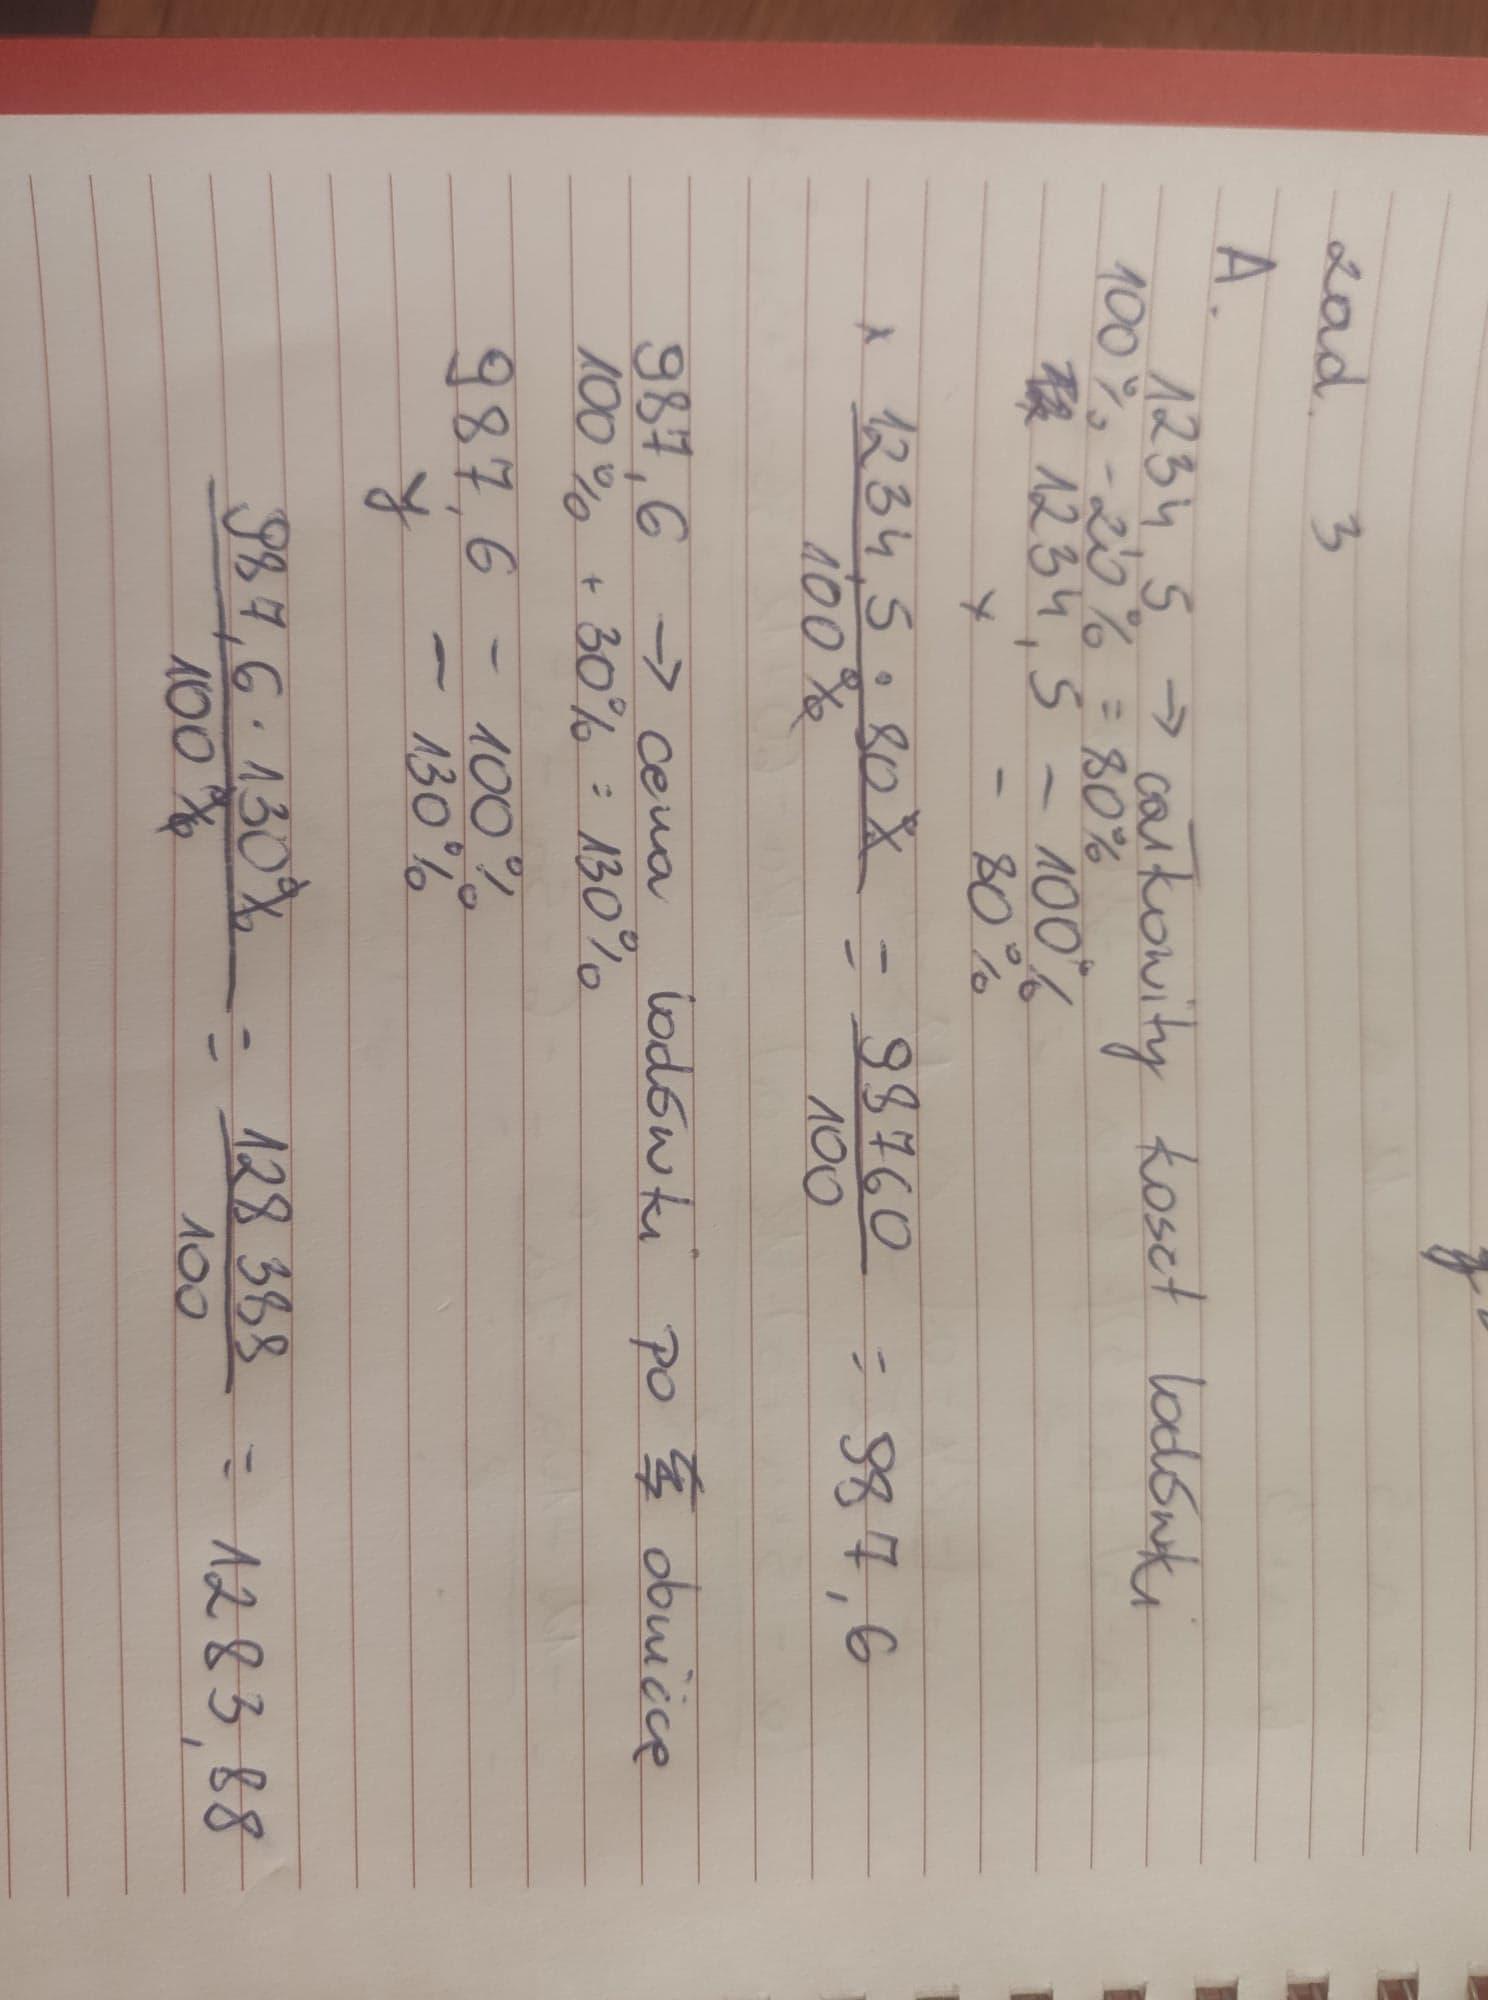 zad. 3
A.
1234,5 → całkowity koszt lodówki
100% - 20% = 80%
1234,5 - 100%
x - 80%
x 1234,5 · 80% / 100% = 98760 / 100 = 987,6
987,6 → cena lodówki po obniżce
100% + 30% = 130%
987,6 - 100%
y - 130%
987,6 · 130% / 100% = 128388 / 100 = 1283,88